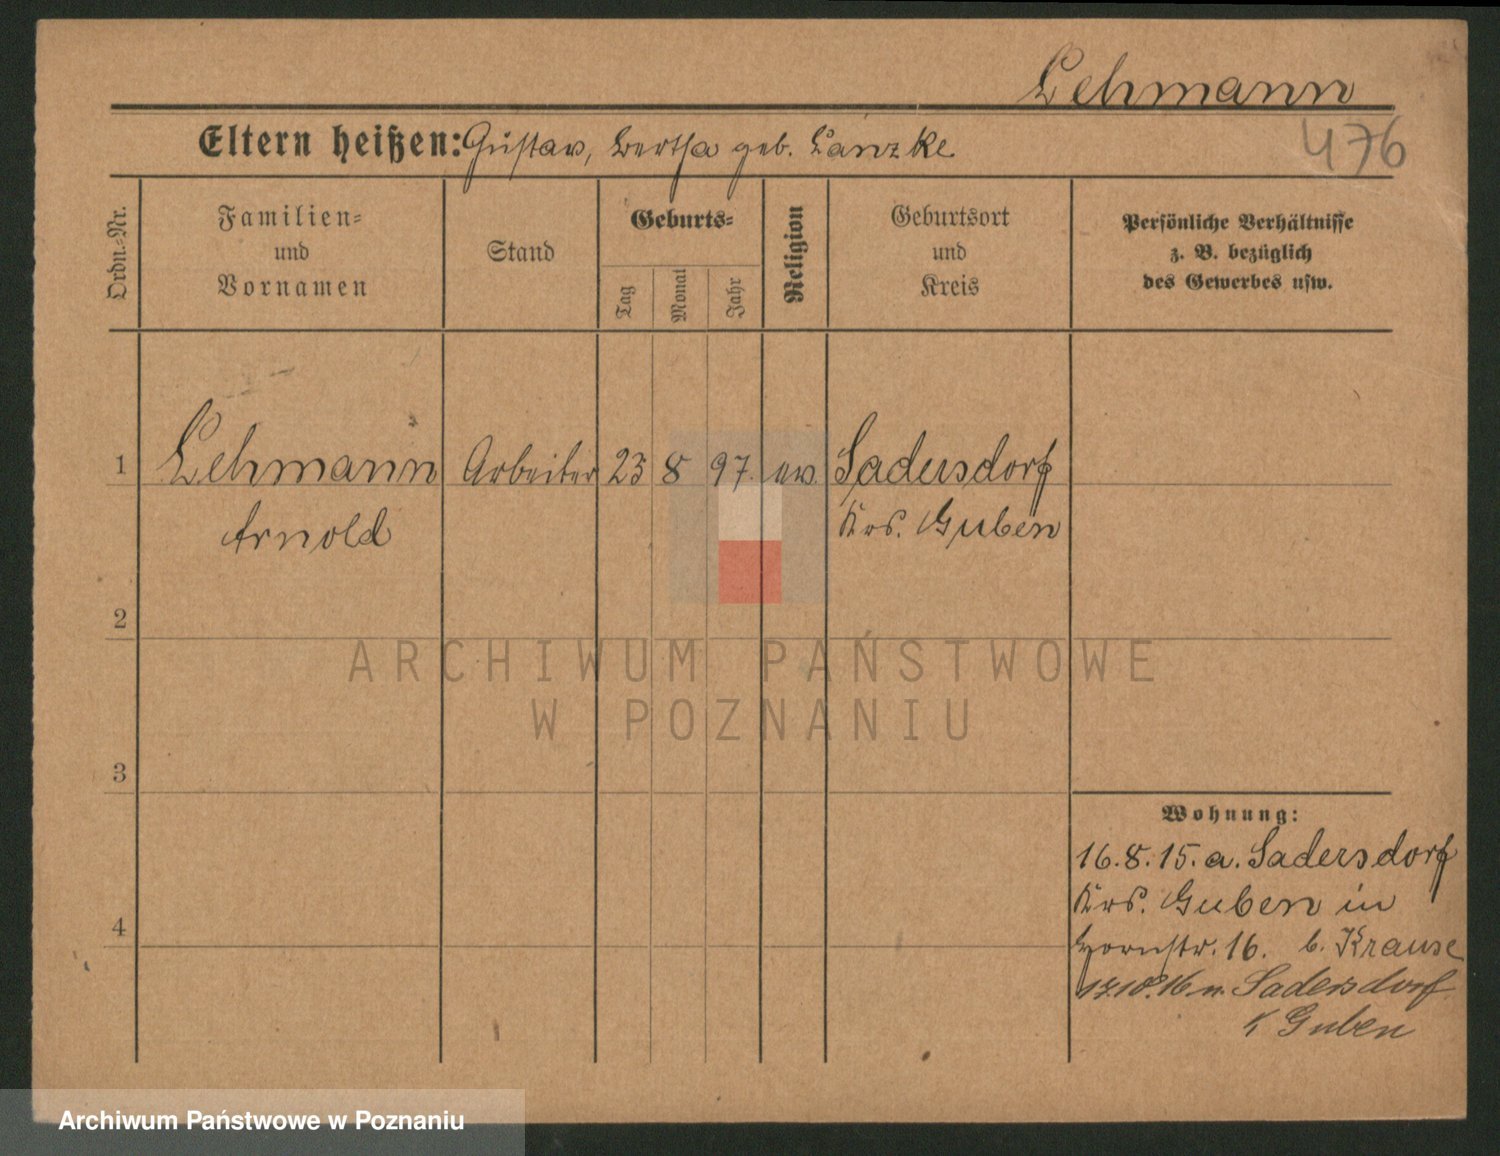 Lehmann
476
Eltern heißen: Gustav, Bertha geb. Lanzke
Ordn.=Nr.
Familien=
und
Vornamen
Stand
Geburts=
Tag
Monat
Jahr
Religion
Geburtsort
und
Kreis
Persönliche Verhältnisse
z. B. bezüglich
des Gewerbes usw.
1 Lehmann Arbeiter 23 8 97. ev. Sadersdorf
Arnold Krs. Guben
2
3
4
Wohnung:
16.8.15. a. Sadersdorf
Krs. Guben in
Hornstr. 16. b. Krause
17.10.16 n. Sadersdorf
K Guben
ARCHIWUM PAŃSTWOWE
W POZNANIU
Archiwum Państwowe w Poznaniu